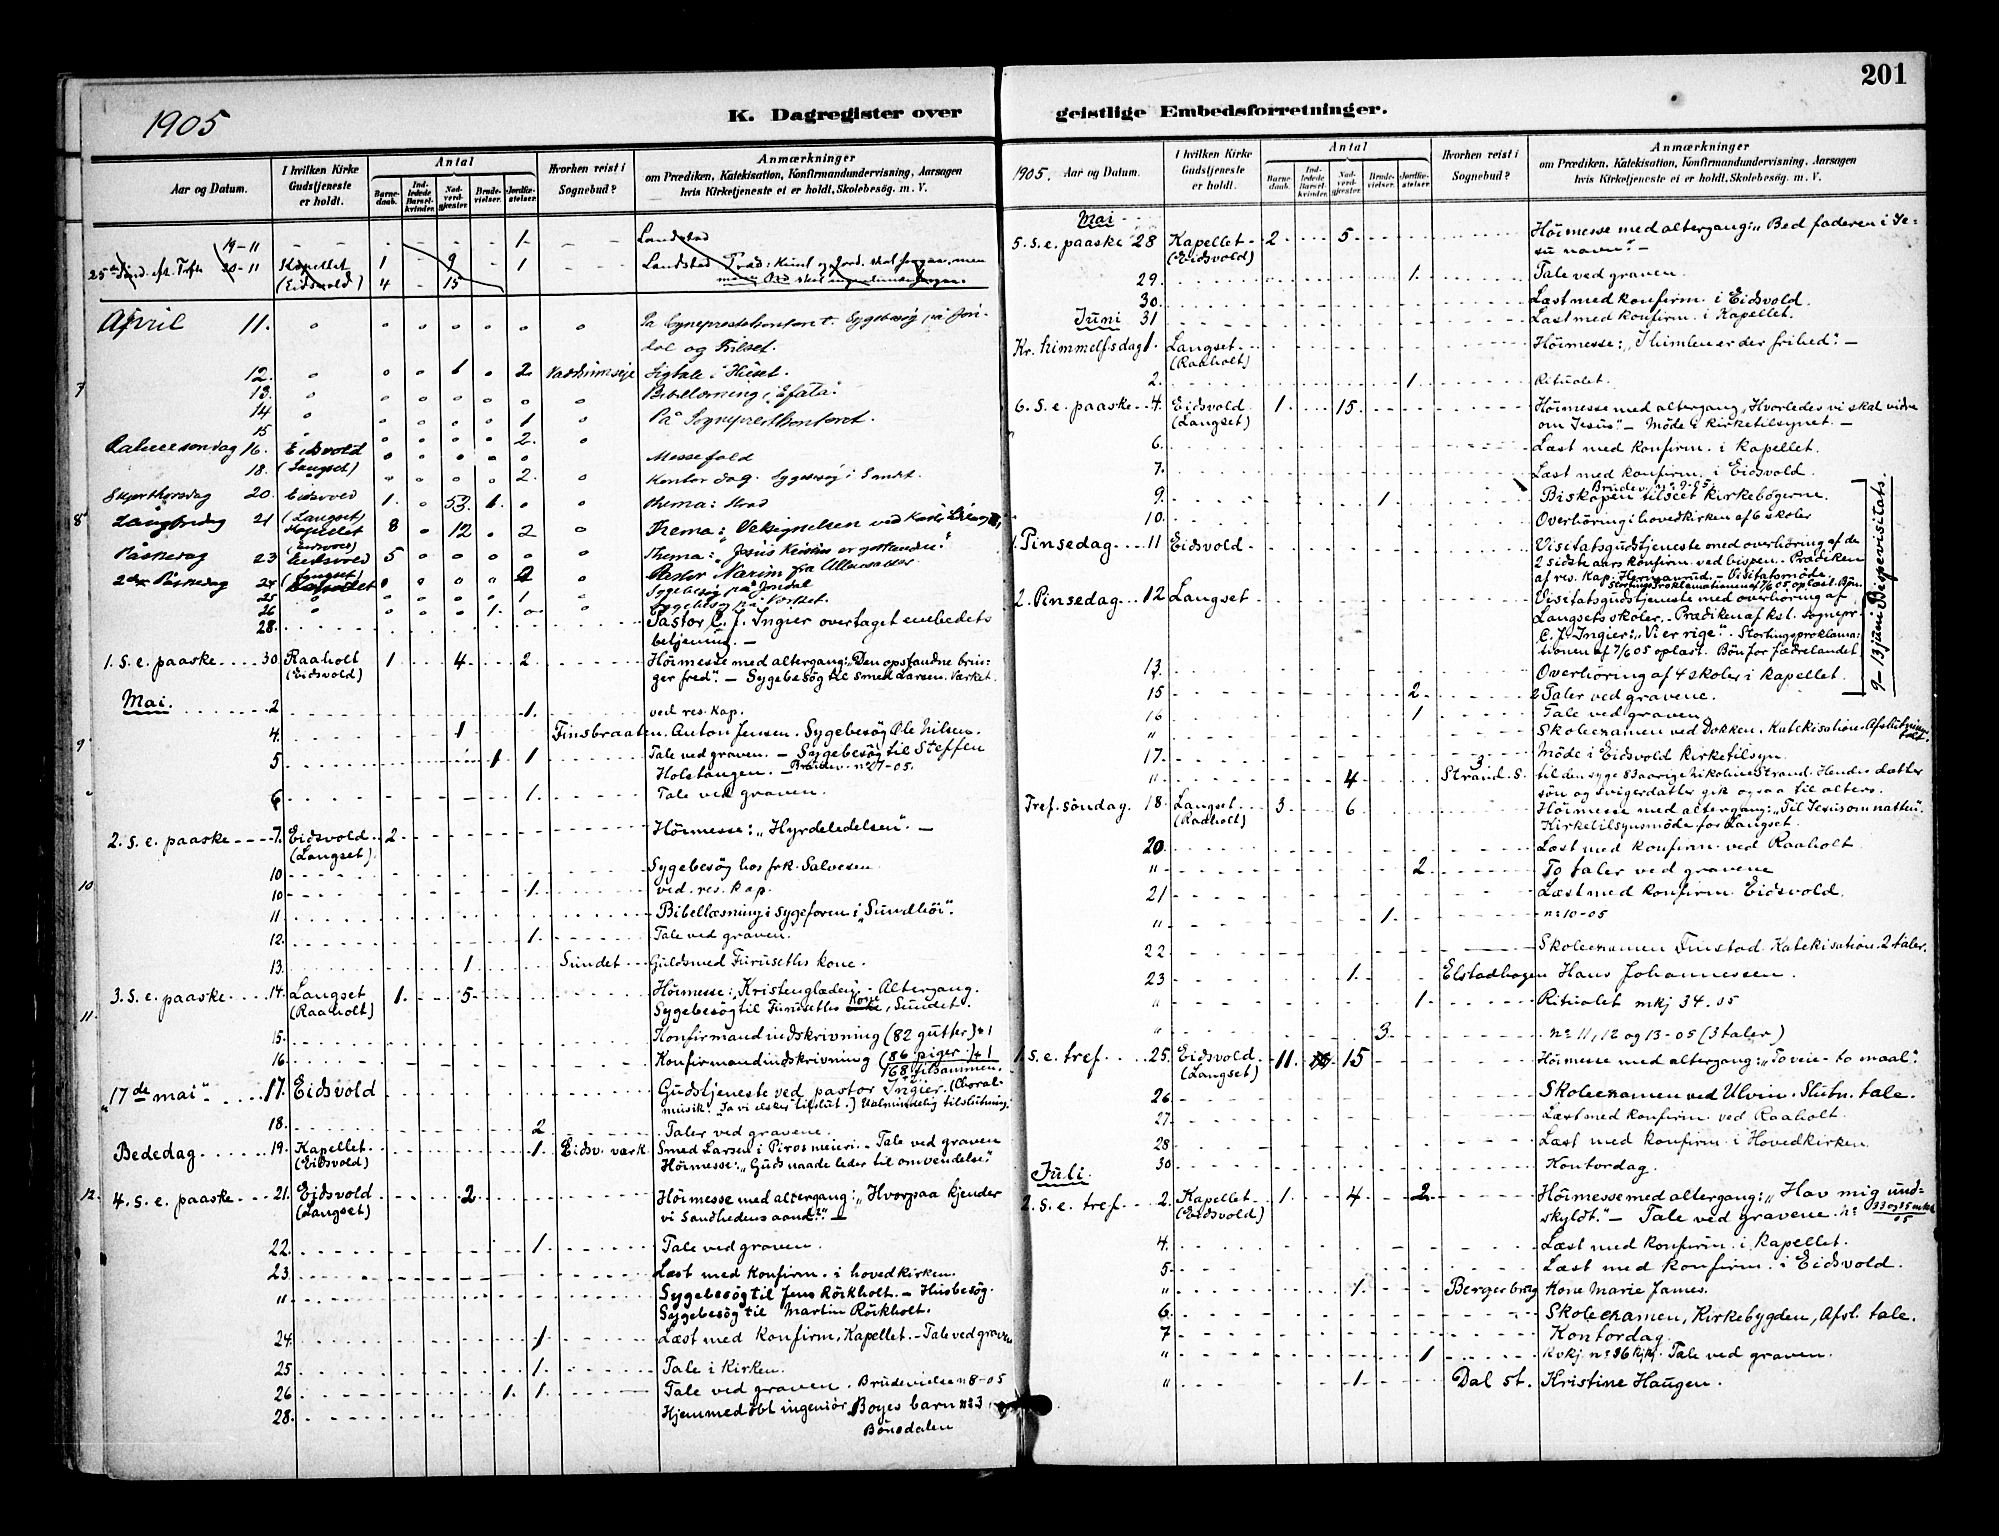 201
1905
K. Dagregister over geistlige Embedsforretninger.
Aar og Datum.
I hvilken Kirke Gudstjeneste er holdt.
Antal
Barne-daab.
Ind-ledede Barsel-kvinder.
Nad-verd-gjester.
Brude-vielser.
Jordfæ-stelser.
Hvorhen reist i Sognebud?
Anmærkninger
om Prædiken, Katekisation, Konfirmandundervisning, Aarsagen
hvis Kirketjeneste ei er holdt, Skolebesøg. m. V.
19-11 - - - 1. - - Landstad
20-11 Kapellet 1 - 9 1 Landstad
(Eidsvold) 4 - 15
April 11.
12. 1 2.
13.
14 1 På Sogneprestkontoret.
15 2.
16. Eidsvold Messefald
(Langset)
18. 2. Kontordag. Sygebesøg i
Skjærthorsdag 20. Eidsvold 1. 53. 1. Thema:
(Langset)
Långfredag 21 Kapellet 8 12 2 Thema: Velsignelsen ved
(Eidsvold)
Påskedag 23 Eidsvold 5 Thema: „Jesus Kristus er opstanden."
(Langset)
2den Påskedag 24 Kapellet Pastor
25 1 Sygebesøg på Jondal
26 1. Sygebesøg på Værket.
28. Pastor C. J. Ingier overtaget embedets
betjening. —
1. S. e. paaske 30 Raaholt 1 4 2 Höimesse med altergang: „Den opstandne brin-
(Eidsvold) ger fred". — Sygebesög til smed Larsen. Værket.
Mai. 2 1. ved res. kap.
4. 1 Finsbraaten. Anton Jensen. Sygebesög Ole Nilsen.
5 1 1 Tale ved graven. — Sygebesög til Steffen
Holstangen. — Brudev. no 7-05.
6 1. Tale ved graven.
2. S. e. paaske 7. Eidsvold 2 Höimesse: „Hyrdeledelsen". —
(Langset)
10 Sygebesög hos frk. Salvesen
10 1. ved. res. kap.
11 Bibellæsning i Sygeforen i „Sundhöi".
12. 1. Tale ved graven.
13. 1 Sundet Guldsmed Furuseths kone.
3. S. e. paaske 14. Langset 1. 5 Höimesse: „Kristenglæden". - Altergang.
(Raaholt) Sygebesög til Furuseths Kone, Sundet.
15. Konfirmandindskrivning (82 gutter) + 1
16. Konfirmandindskrivning (86 piger) + 1
168 tilsammen.
„17de mai". 17. Eidsvold Gudstjeneste ved pastor Ingier. (Choral-
musik. „Ja vi elsker" tilslut.) Ualmindelig tilslutning.
18. 2 Taler ved gravene.
Bededag 19. Kapellet 1. Eidsv. værk Smed Larsen i Piros meieri. - Tale ved graven
(Eidsvold) Höimesse: „Guds naade leder til omvendelse."
4. S. e. paaske 21. Eidsvold 2 Höimesse med altergang: „Hvorpaa kjender
(Langset) vi sandhedens aand?" —
22. 1 Tale ved graven.
23. Læst med konfirm. i hovedkirken.
" Sygebesög til Jens Röckholt. — Husbesög.
Sygebesög til Martin Röckholt.
24. 1 Læst med konfirm, Kapellet. - Tale ved graven
25 1. Tale i Kirken.
26 1. 1. Tale ved graven. Brudevielse n 8-05
28. Hjemmedöbt ingeniör Boyes barn no 3
Bönsdalen
7
8
9
10
11.
12.
1905. Aar og Datum.
I hvilken Kirke Gudstjeneste er holdt.
Antal
Barne-daab.
Ind-ledede Barsel-kvinder.
Nad-verd-gjester.
Brude-vielser.
Jordfæ-stelser.
Hvorhen reist i Sognebud?
Anmærkninger
om Prædiken, Katekisation, Konfirmandundervisning, Aarsagen
hvis Kirketjeneste ei er holdt, Skolebesøg. m. V.
Mai
5. S. e. paaske 28 Kapellet 2 5 Höimesse med altergang: „Bed faderen i Je-
(Eidsvold) su navn". —
29. 1 Tale ved graven.
30. Læst med konfirm. i Eidsvold.
Juni 31 Læst med konfirm. i Kapellet.
Kr. himmelfsdag 1. Langset Höimesse: „I himlen er der frihed". —
(Raaholt)
2. 1 Ritualet.
6. S. e. paaske 4. Eidsvold 1 15 Höimesse med altergang „Hvorledes vi skal vidne
(Langset) om Jesus" — Möde i kirketilsynet. —
6. Læst med konfirm. i Kapellet.
7. Læst med konfirm. i Eidsvold.
Brudev. no. 9-05.
9. 1 Biskopen tilseet kirkebögerne.
10. Overhöring i hovedkirken af 6 skoler
1. Pinsedag 11 Eidsvold Visitatsgudstjeneste med overhöring af de
2 sidste aars konfirm. ved bispen. Prædiken
af res. Kap. Hermanrud. — Visitatsmöde.
Stortingsproklamationen af 7/6 05 oplæst. Bön.
2. Pinsedag 12 Langset Visitatsgudstjeneste med overhöring af
Langsets skoler. Prædiken af kst. Sognepr.
C. J. Ingier: „Vi er rige". Stortingsproklama-
tionen af 7/6 05 oplæst. Bön for fædrelandet
13. Overhöring af 4 skoler i kapellet.
9-13 juni Bispevisitats.
15 2 2 Taler ved gravene.
16 1 Tale ved graven
" Skoleexamen ved Dokken. Katekisation. Afslutningstale.
17. Möde i Eidsvold kirketilsyn.
" 4 Strand. S. til den syge 83 aarige Nikoline Strand. Hendes datter
sön og svigerdatter gik ogsaa til alters.
Tref. söndag. 18. Langset 3 6 Höimesse med altergang: „Til Jesus om natten".
(Raaholt) Kirketilsynsmöde for Langset.
20. Læst med konfirm. ved Raaholt.
" 2 To taler ved gravene
21 Læst med konfirm. Eidsvold.
" 1 no 10-05
22 Skoleexamen Finstad. Katekisation. 2 taler.
23 1. Elstadhagen Hans Johannessen.
" 1 Ritualet mkj 34. 05
" 3 no 11, 12 og 13-05 (3 taler)
1. S. e. tref. 25. Eidsvold 11 15 Höimesse med altergang: „To veie - to maal".
(Langset)
26. Skoleexamen ved Ulvin. Slutn. tale.
27. Læst med konfirm. ved Raaholt.
28 Læst med konfirm. i Hovedkirken
30 Kontordag.
Juli.
2. S. e. tref. 2. Kapellet 1 4 2 Höimesse med altergang: „Hav mig und-
(Eidsvold) skyldt." — Tale ved gravene. no 33 og 35 mkkj 05
4. Læst med konfirm. i kapellet.
5. Læst med konfirm. i Eidsvold.
" 1. Bergerbrug Kone Marie James.
6. Skoleexamen, Kirkebygden, Afsl. tale.
7 Kontordag.
" 1 Kvkj no 36 kjkj. Tale ved graven.
" 1 Dal st. Kristine Haugen.